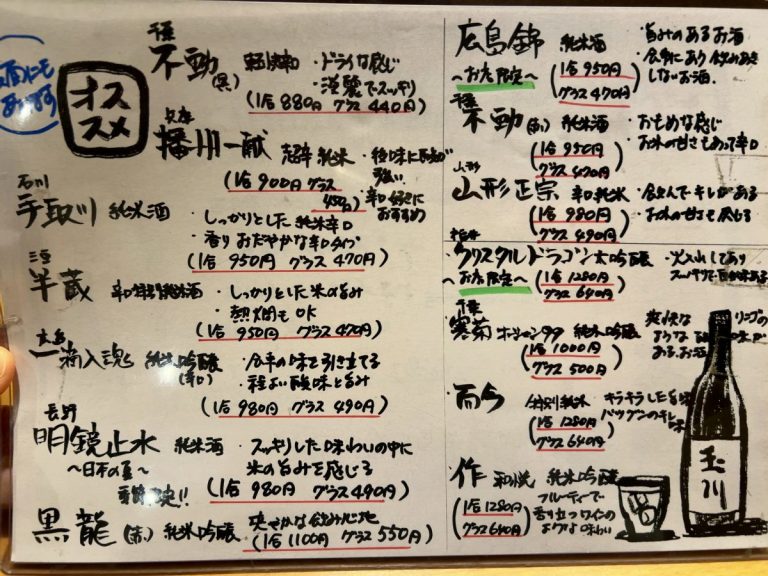 オススメ
千葉
不動
・ドライな感じ
・淡麗でスッキリ
(1合 880円 グラス 440円)
兵庫
播州一献 超辛 純米
(1合 900円 グラス 450円)
・辛口好きにおすすめ
石川
手取川 純米酒
・しっかりとした純米辛口
・香りおだやかな辛口タイプ
(1合 950円 グラス 470円)
三重
半蔵
・しっかりとした米の旨み
・熱燗もOK
(1合 950円 グラス 470円)
一滴入魂 純米吟醸
(辛口)
・程よい酸味と旨み
(1合 980円 グラス 490円)
長野
明鏡止水 純米酒
〜日本の夏〜
・スッキリした味わいの中に
米の旨みを感じる
(1合 980円 グラス 490円)
黒龍 純米吟醸
爽やかな飲み心地
(1合 1100円 グラス 550円)
広島錦 純米酒
〜お店限定〜
(1合 950円
グラス 470円)
・旨みのあるお酒
・食事にあう飲みあきしないお酒。
千葉
不動 純米酒
(1合 950円
グラス 470円)
・おもめな感じ
・お米の甘さもあって辛口
山形
山形正宗 辛口純米
(1合 980円
グラス 490円)
・お米の甘さも
・クリスタルドラゴン 大吟醸
〜お店限定〜
(1合 1280円
グラス 640円)
・火入れしてあり
千葉
寒菊 純米吟醸
(1合 1000円
グラス 500円)
爽快な
リンゴの
ような
あるお酒
而今 特別純米
(1合 1280円
グラス 640円)
キラキラした旨味
バツグンのキレ味
作 和悦 純米吟醸
(1合 1280円
グラス 640円)
フルーティーで
香り立つワインの
ような味わい
玉川